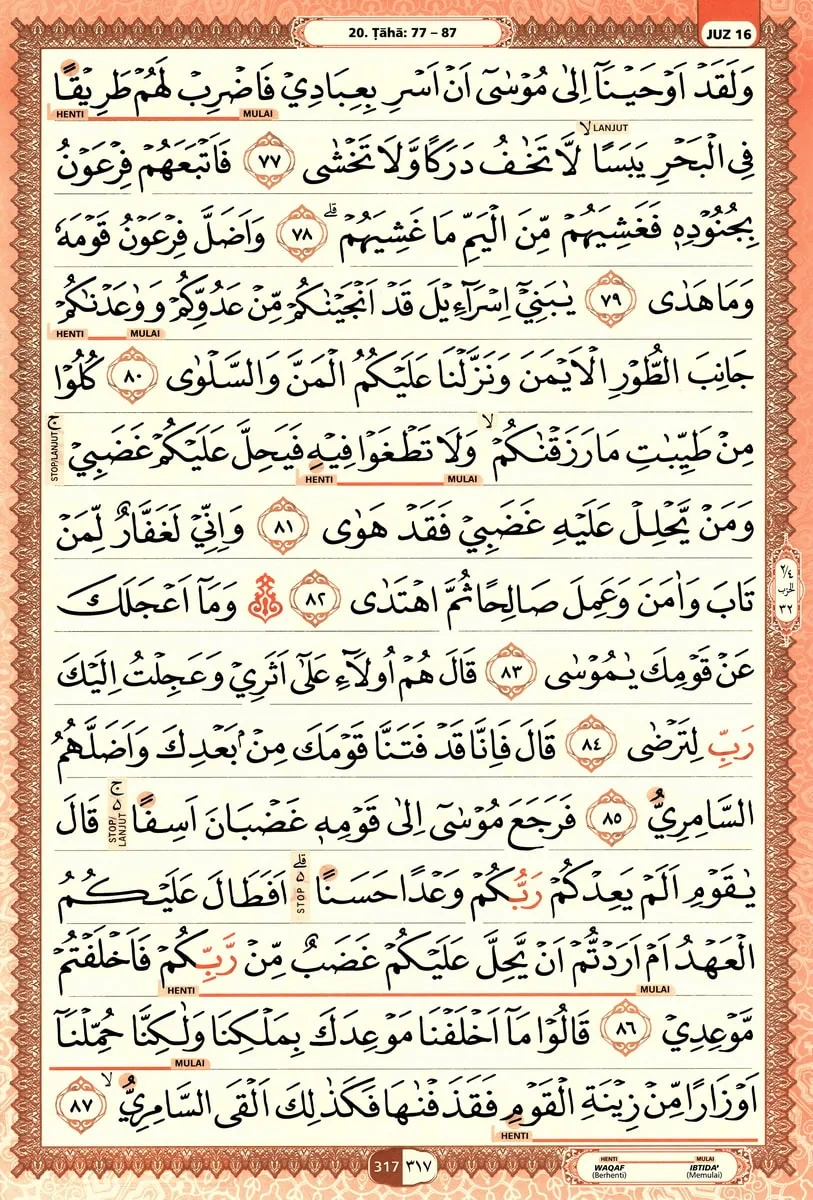 20. Ṭāhā: 77 – 87
JUZ 16
وَلَقَدْ اَوْحَيْنَآ اِلٰى مُوْسٰٓى اَنْ اَسْرِ بِعِبَادِيْ فَاضْرِبْ لَهُمْ طَرِيْقًا
HENTI MULAI
لا LANJUT
فِى الْبَحْرِ يَبَسًا لَّا تَخٰفُ دَرَكًا وَّلَا تَخْشٰى ٧٧ فَاَتْبَعَهُمْ فِرْعَوْنُ
بِجُنُوْدِهٖ فَغَشِيَهُمْ مِّنَ الْيَمِّ مَا غَشِيَهُمْ ۗ ٧٨ وَاَضَلَّ فِرْعَوْنُ قَوْمَهٗ
وَمَا هَدٰى ٧٩ يٰبَنِيْٓ اِسْرَاۤءِيْلَ قَدْ اَنْجَيْنٰكُمْ مِّنْ عَدُوِّكُمْ وَوٰعَدْنٰكُمْ
HENTI MULAI
جَانِبَ الطُّوْرِ الْاَيْمَنَ وَنَزَّلْنَا عَلَيْكُمُ الْمَنَّ وَالسَّلْوٰى ٨٠ كُلُوْا
مِنْ طَيِّبٰتِ مَا رَزَقْنٰكُمْۙ وَلَا تَطْغَوْا فِيْهِ فَيَحِلَّ عَلَيْكُمْ غَضَبِيْۚ
STOP/LANJUT
HENTI MULAI
وَمَنْ يَّحْلِلْ عَلَيْهِ غَضَبِيْ فَقَدْ هَوٰى ٨١ وَاِنِّيْ لَغَفَّارٌ لِّمَنْ
تَابَ وَاٰمَنَ وَعَمِلَ صَالِحًا ثُمَّ اهْتَدٰى ٨٢ وَمَآ اَعْجَلَكَ
٢/٤
الحزب
٣٢
عَنْ قَوْمِكَ يٰمُوْسٰى ٨٣ قَالَ هُمْ اُولَاۤءِ عَلٰٓى اَثَرِيْ وَعَجِلْتُ اِلَيْكَ
رَبِّ لِتَرْضٰى ٨٤ قَالَ فَاِنَّا قَدْ فَتَنَّا قَوْمَكَ مِنْۢ بَعْدِكَ وَاَضَلَّهُمُ
السَّامِرِيُّ ٨٥ فَرَجَعَ مُوْسٰٓى اِلٰى قَوْمِهٖ غَضْبَانَ اَسِفًا ەۚ قَالَ
STOP/LANJUT
يٰقَوْمِ اَلَمْ يَعِدْكُمْ رَبُّكُمْ وَعْدًا حَسَنًا ەۗ اَفَطَالَ عَلَيْكُمُ
STOP
الْعَهْدُ اَمْ اَرَدْتُّمْ اَنْ يَّحِلَّ عَلَيْكُمْ غَضَبٌ مِّنْ رَّبِّكُمْ فَاَخْلَفْتُمْ
HENTI MULAI
مَّوْعِدِيْ ٨٦ قَالُوْا مَآ اَخْلَفْنَا مَوْعِدَكَ بِمَلْكِنَا وَلٰكِنَّا حُمِّلْنَآ
MULAI
اَوْزَارًا مِّنْ زِيْنَةِ الْقَوْمِ فَقَذَفْنٰهَا فَكَذٰلِكَ اَلْقَى السَّامِرِيُّ ۙ ٨٧
HENTI
317 ٣١٧
HENTI MULAI
WAQAF IBTIDA'
(Berhenti) (Memulai)